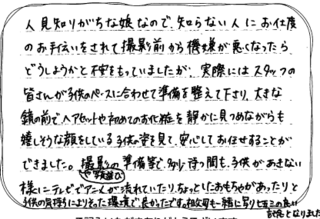 人見知りがちな娘なので、知らない人にお仕度
のお手伝いをされて撮影前から機嫌が悪くなったら
どうしようかと不安をもっていましたが、実際にはスタッフの
皆さんが子供のペースに合わせて準備を整えて下さり、大きな
鏡の前でヘアセットや初めてのお化粧を静かに見つめながらも
嬉しそうな顔をしている子供の姿を見て、安心してお任せすることが
できました。撮影の準備等で、少し待つ間も、子供があきない
様にテレビでアニメが流れていたり、ちょっとしたおもちゃがあったりと
子供の気持ちにそった環境で良かったです。祖父母も一緒に写りとても良い
記念となりました